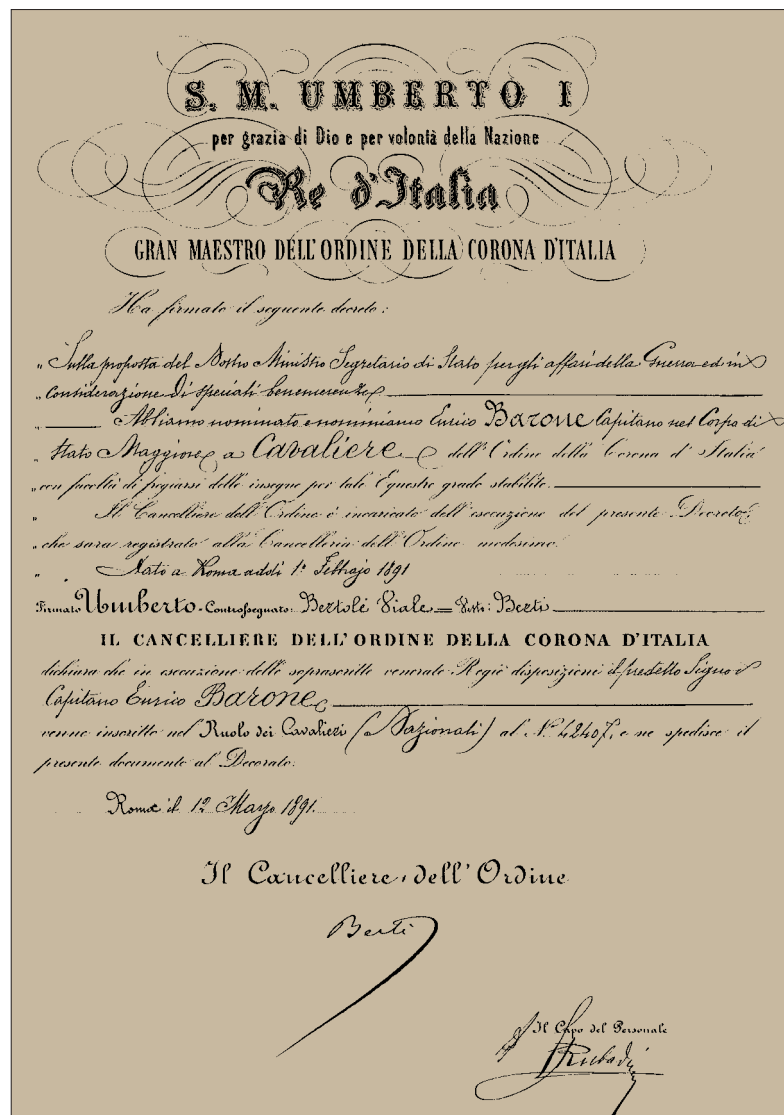 S. M. UMBERTO I
per grazia di Dio e per volontà della Nazione
Re d'Italia
GRAN MAESTRO DELL'ORDINE DELLA CORONA D'ITALIA
Ha firmato il seguente decreto:
„ Sulla proposta del Nostro Ministro Segretario di Stato per gli affari della Guerra ed in
„ considerazione di speciali benemerenze
„ Abbiamo nominato e nominiamo Enrico Barone Capitano nel Corpo di
„ Stato Maggiore a Cavaliere dell'Ordine della Corona d'Italia
„ con facoltà di fregiarsi delle insegne per tale Equestre grado stabilite.
„ Il Cancelliere dell'Ordine è incaricato dell'esecuzione del presente Decreto
„ che sarà registrato alla Cancelleria dell'Ordine medesimo.
„ Dato a Roma addì 1° Febbrajo 1891
Firmato Umberto - Controssegnato: Bertolè Viale = Visto: Berti
IL CANCELLIERE DELL'ORDINE DELLA CORONA D'ITALIA
dichiara che in esecuzione delle soprascritte venerate Regie disposizioni il predetto Signor
Capitano Enrico Barone
venne inscritto nel Ruolo dei Cavalieri (Nazionali) al N. 42407, e ne spedisce il
presente documento al Decorato.
Roma il 12 Marzo 1891.
Il Cancelliere dell'Ordine
Berti
Il Capo del Personale